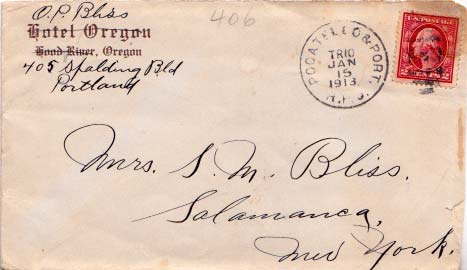 O.P. Bliss
Hotel Oregon
Hood River, Oregon
405 Spalding Bld
Portland
406
POCATELLO & PORT.
TR10
JAN
15
1913
R.P.O.
U.S. POSTAGE
Mrs. S. M. Bliss.
Salamanca,
New York.